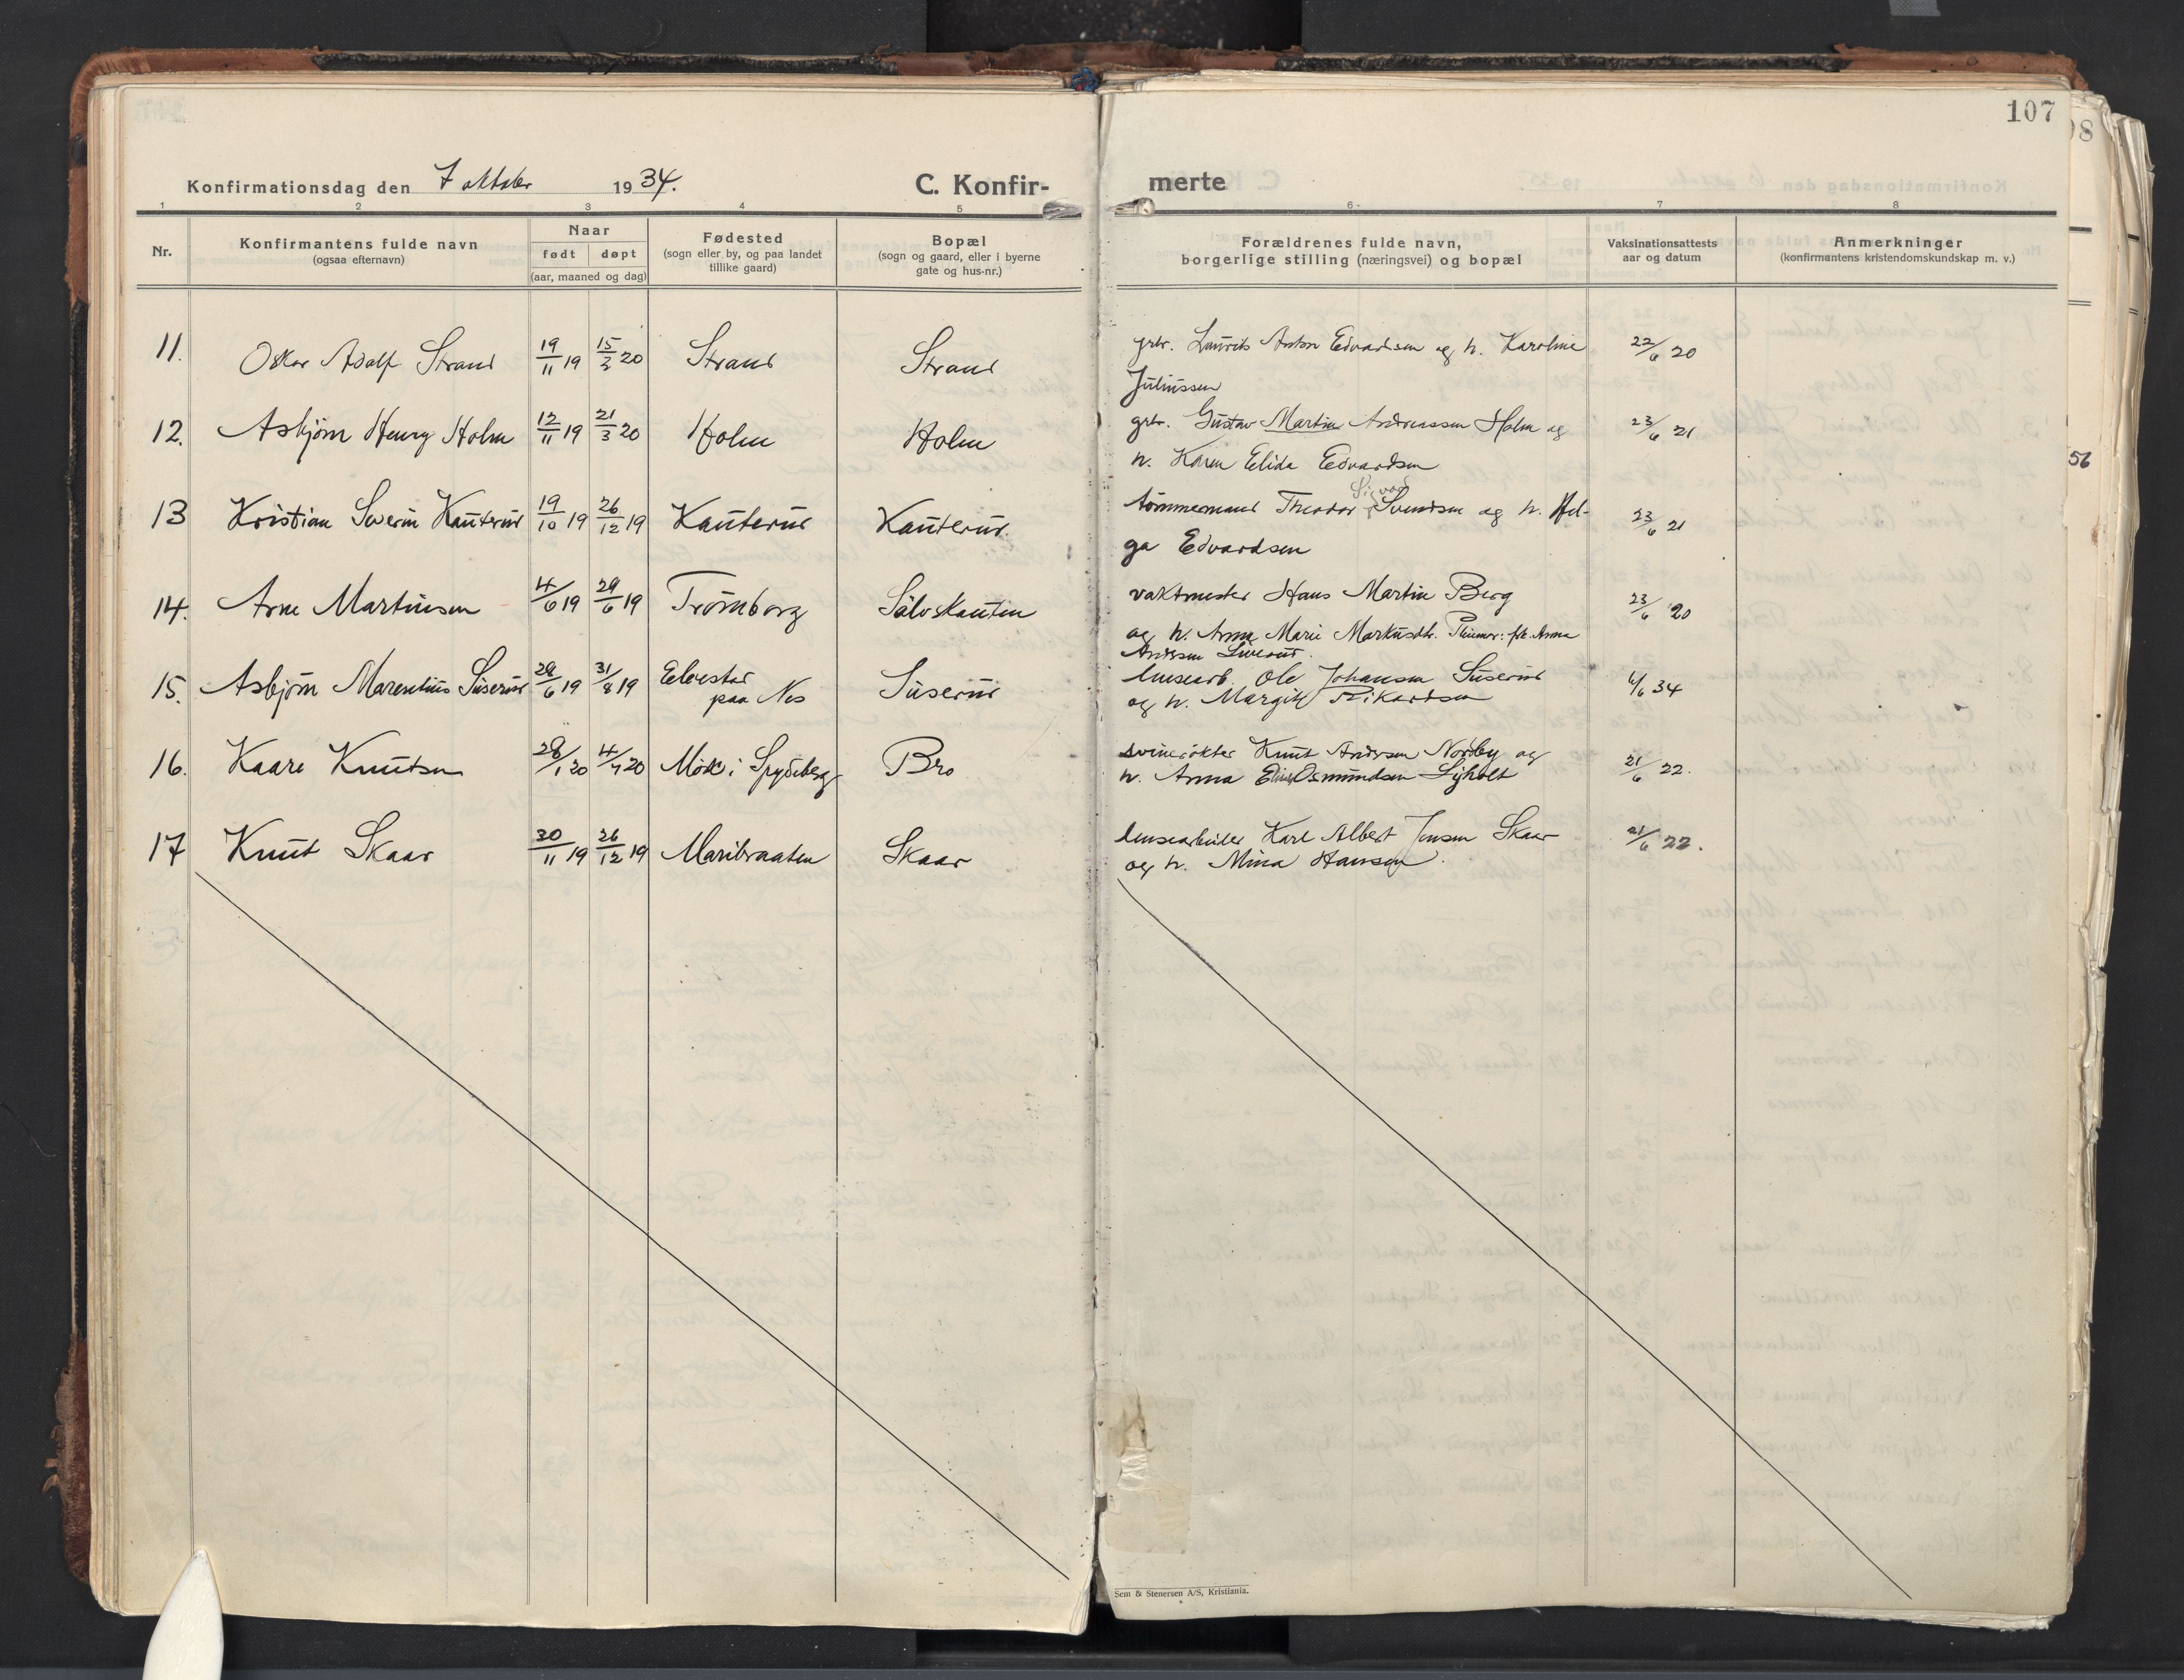 107
Konfirmationsdag den 7 oktober 1934.
C. Konfir-
merte
1 2 3 4 5
6 7 8
Nr.
Konfirmantens fulde navn
(ogsaa efternavn)
Naar
født døpt
(aar, maaned og dag)
Fødested
(sogn eller by, og paa landet
tillike gaard)
Bopæl
(sogn og gaard, eller i byerne
gate og hus-nr.)
Forældrenes fulde navn,
borgerlige stilling (næringsvei) og bopæl
Vaksinationsattests
aar og datum
Anmerkninger
(konfirmantens kristendomskundskap m. v.)
11. Oskar Adolf Strand 19/11 19 15/2 20 Strand Strand
grbr. Laurits Anton Edvardsen og h. Karoline 22/6 20
Juliussen
12. Asbjørn Henry Holm 12/11 19 21/3 20 Holm Holm
grbr. Gustav Martin Andreassen Holm og 23/6 21
h. Karen Elida Edvardsen
13 Kristian Severin Kauterud 19/10 19 26/12 19 Kauterud Kauterud.
Sigvard
tömmermand Theodor Svendsen og h. Hel- 23/6 21
ga Edvardsen
14. Arne Martinsen 4/6 19 29/6 19 Trømborg
vaktmester Hans Martin Berg 23/6 20
og h. Anna Marie Markusdtr. Pleiemor: frk. Anna
Andersen
15. Asbjørn Marentius Suserud 28/6 19 31/8 19 Elvestad
paa Nes
Suserud
lensearb. Ole Johansen Suserud 6/6 34
og h. Margit Rikardsen
16. Kaare Knutsen 28/1 20 4/4 20 Mörk i Spydeberg Bro
svinerökter Knut Andersen Nordby og 21/6 22.
h. Anna Elise Osmundsen Lyholt
17 Knut Skaar 30/11 19 26/12 19 Maribraaten Skaar
lensearbeider Karl Albert Jensen Skaar 21/6 22.
og h. Mina Hansen.
56
Sem & Stenersen A/S, Kristiania.